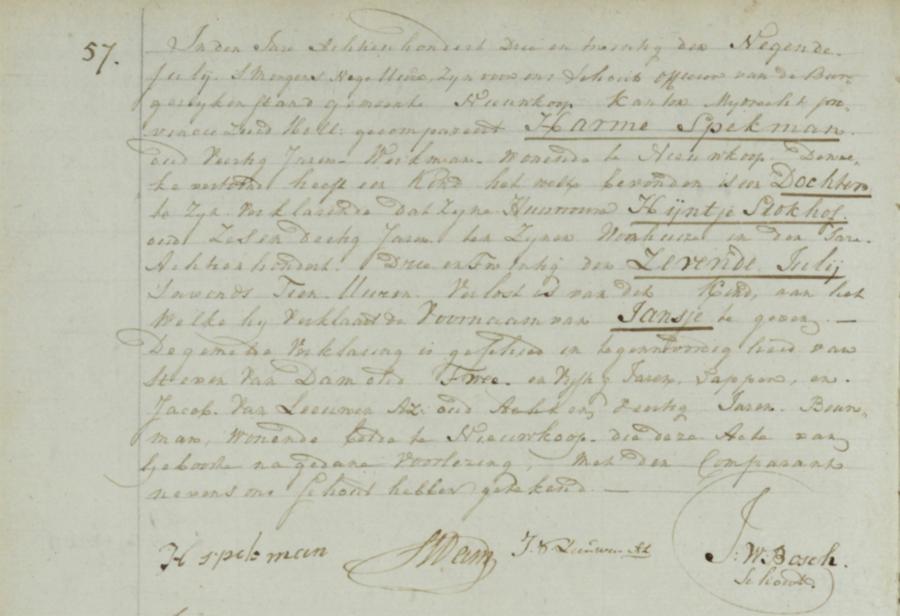 57. In den Jare Achttienhondert Drie en twintig den Negende
Julij S'Morgens Negen Uuren, Zyn voor ons Schout officier van de Bur-
gerlyken stand gemeente Nieuwkoop Kanton Mydrecht pro-
vincie Zuid Holl: gecompareert Harme Spekman.
oud Veertig Jaren Werkman Wonende te Nieuwkoop. Denwe-
ke vertoond heeft een Kind het welk bevonden is een Dochter
te Zyn Verklarende dat Zyne Huisvrouw Hijntje Stokhof.
oud Zes en Dertig Jaren ten Zynen Woonhuize in den Jare
Achttienhondert Drie en Twintig den Zevende Julij
Savonds Tien Uuren Verlost is van dit Kind, aan het
Welke hy Verklaart de Voornaam van Jansje te geven. —
De gemelde Verklaring is geschied in tegenwoordigheid van
Steven Van Dam oud Twee en Vyftig Jaren, Tapper, en
Jacob Van Leeuwen Az: oud Acht en Veertig Jaren Bouw-
man, Wonende beide te Nieuwkoop die deze Acte van
Geboorte na gedane Voorlezing, Met den Comparant
nevens ons Schout hebben getekend —
H spekman SVDam J. V. Leeuwen Az J: W: Bosch.
Schout.